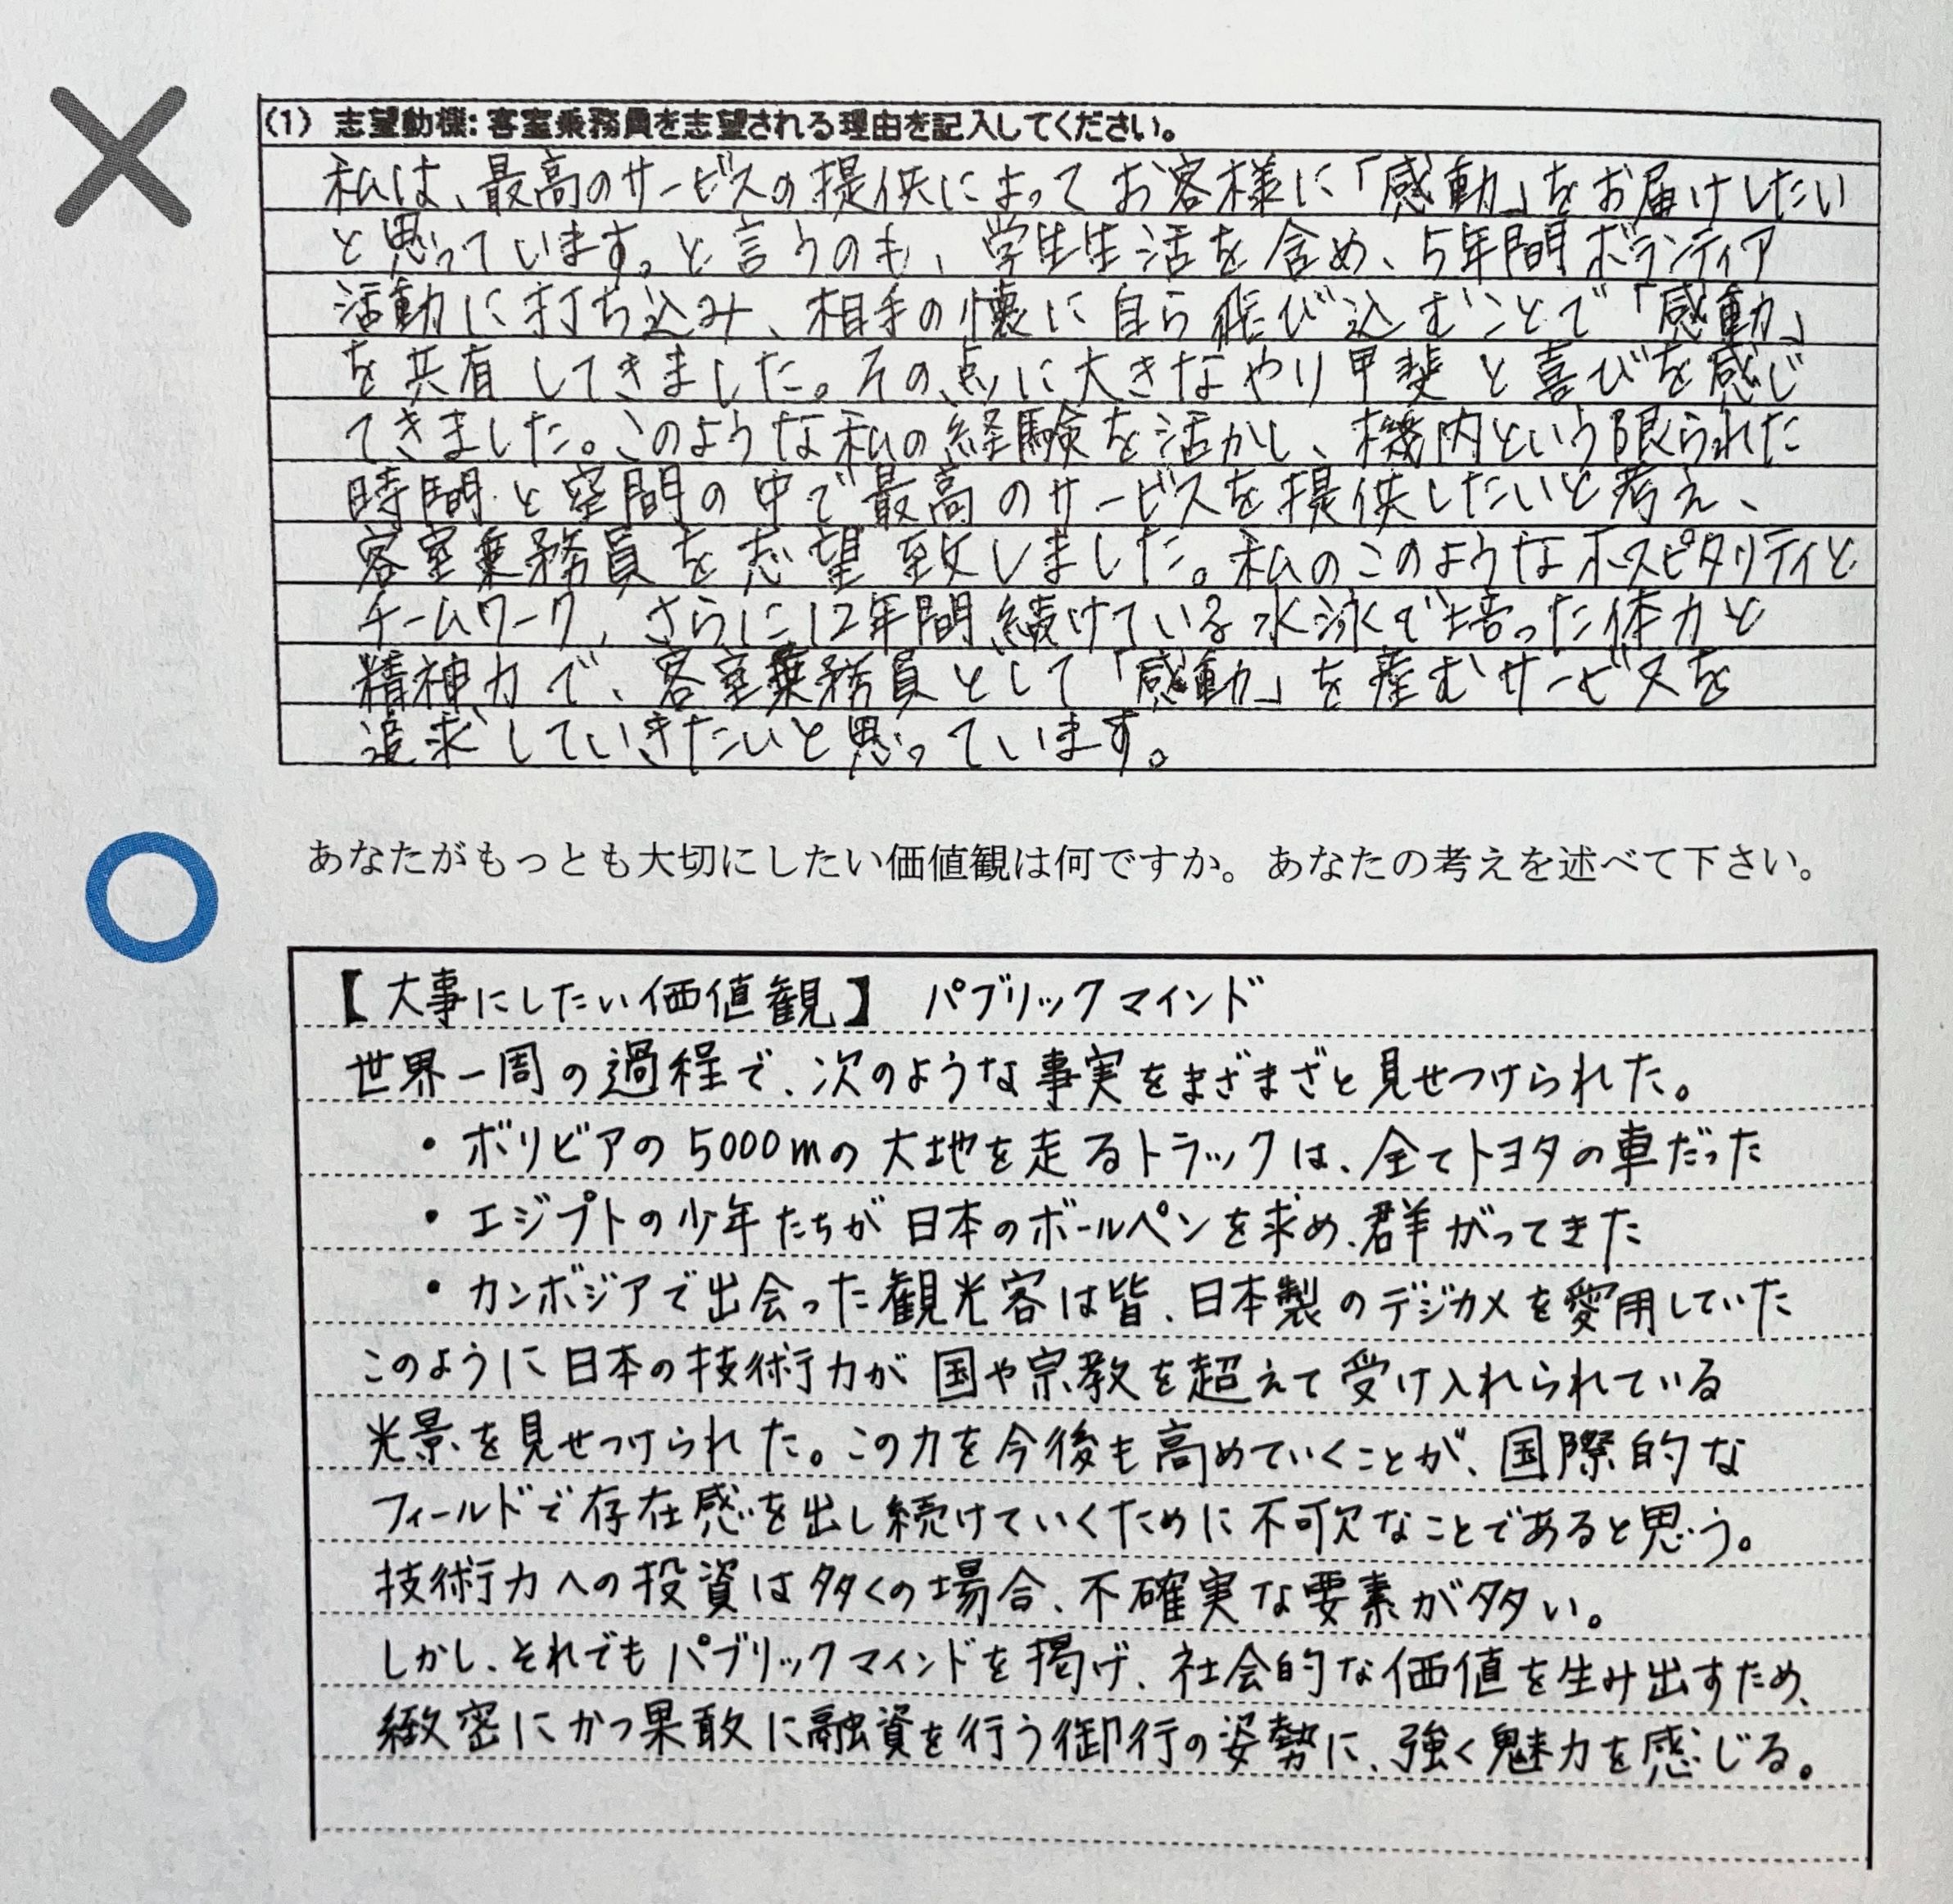 (1) 志望動機：客室乗務員を志望される理由を記入してください。
私は、最高のサービスの提供によってお客様に「感動」をお届けしたい
と思っています。と言うのも、学生生活を含め、5年間ボランティア
活動に打ち込み、相手の懐に自ら飛び込むことで「感動」
を共有してきました。その点に大きなやり甲斐と喜びを感じ
てきました。このような私の経験を活かし、機内という限られた
時間と空間の中で最高のサービスを提供したいと考え、
客室乗務員を志望致しました。私のこのようなホスピタリティと
チームワーク、さらに12年間続けている水泳で培った体力と
精神力で、客室乗務員として「感動」を産むサービスを
追求していきたいと思っています。
あなたがもっとも大切にしたい価値観は何ですか。あなたの考えを述べて下さい。
【大事にしたい価値観】 パブリックマインド
世界一周の過程で、次のような事実をまざまざと見せつけられた。
・ボリビアの5000mの大地を走るトラックは、全てトヨタの車だった
・エジプトの少年たちが日本のボールペンを求め、群がってきた
・カンボジアで出会った観光客は皆、日本製のデジカメを愛用していた
このように日本の技術力が国や宗教を超えて受け入れられている
光景を見せつけられた。この力を今後も高めていくことが、国際的な
フィールドで存在感を出し続けていくために不可欠なことであると思う。
技術力への投資は多くの場合、不確実な要素が多い。
しかし、それでもパブリックマインドを掲げ、社会的な価値を生み出すため、
緻密にかつ果敢に融資を行う御行の姿勢に、強く魅力を感じる。